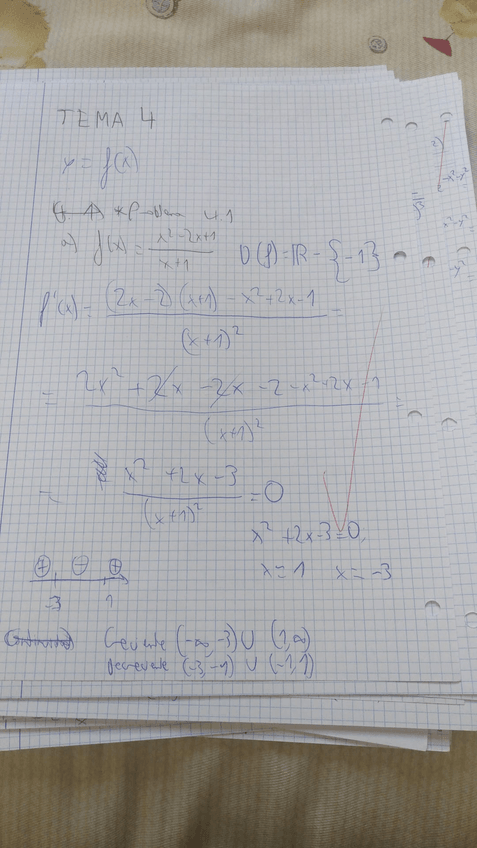 TEMA 4
y = f(x)
Problema 4.1
a) f(x) = (x²-2x+1)/(x+1) D(f) = ℝ - {-1}
f'(x) = ((2x-2)(x+1) - x²+2x-1)/(x+1)² =
= (2x² + 2x - 2x - 2 - x² + 2x - 1)/(x+1)² =
= (x² + 2x - 3)/(x+1)² = 0
x² + 2x - 3 = 0
x = 1 x = -3
+ - +
-3 1
Creciente (-∞, -3) ∪ (1, ∞)
Decreciente (-3, -1) ∪ (-1, 1)